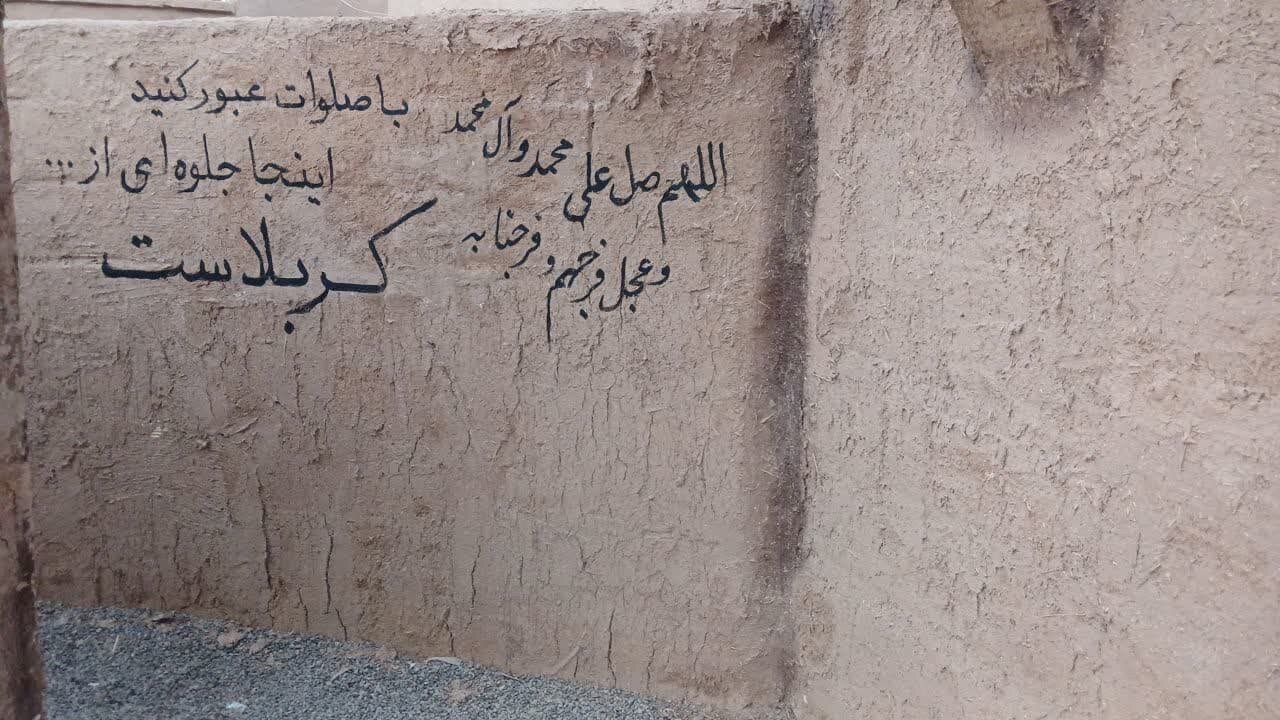 اللهم صل علی محمد وآل محمد
وعجل فرجهم وفرجنا به
با صلوات عبور کنید
اینجا جلوه ای از...
کربلاست